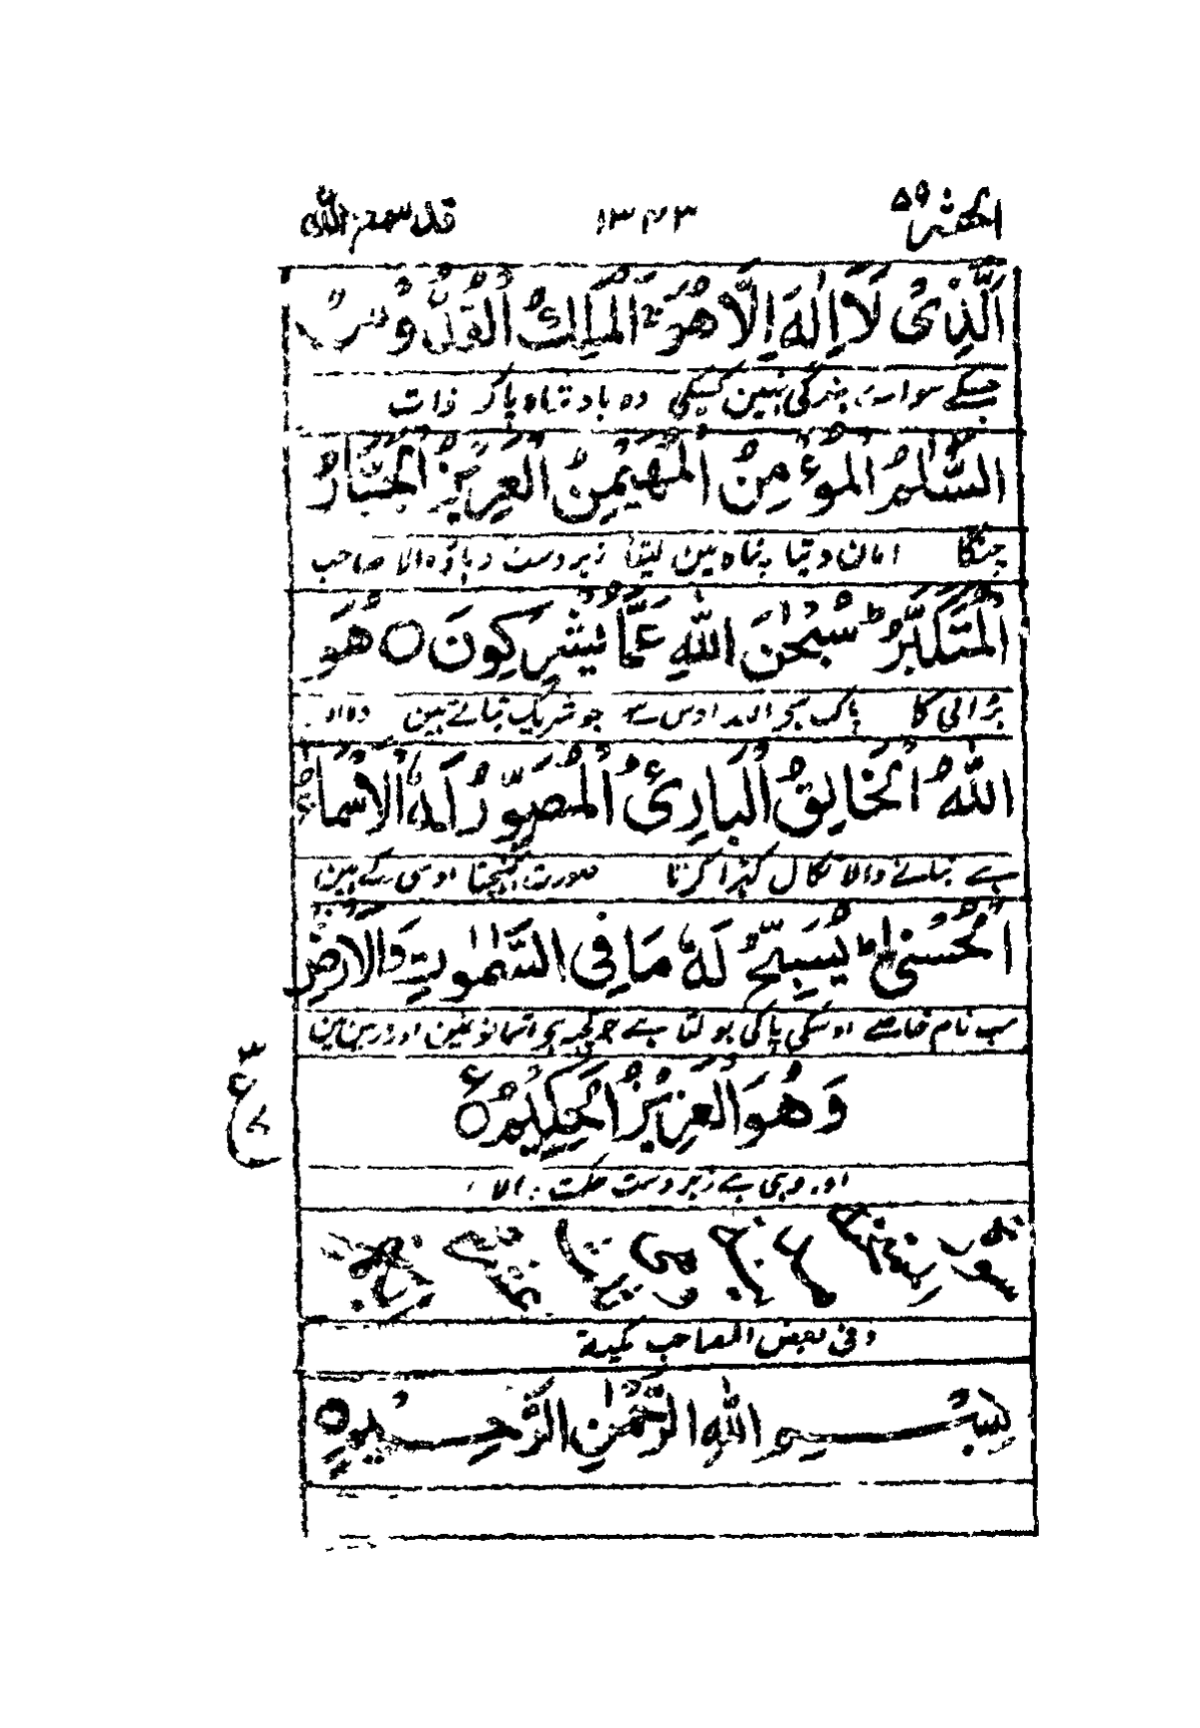 الحشر ٥٩ ١٣٤٣ قد سمع الله
الَّذِىْ لَآ اِلٰهَ اِلَّا هُوَ ۚ اَلْمَلِكُ الْقُدُّوْسُ
جسکے سوا بندگی نہین کسیکی وہ بادشاہ پاک ذات
السَّلٰمُ الْمُؤْمِنُ الْمُهَيْمِنُ الْعَزِيْزُ الْجَبَّارُ
چنگا امان دیتا پناہ مین لیتا زبردست دباؤ والا صاحب
الْمُتَكَبِّرُ ؕ سُبْحٰنَ اللّٰهِ عَمَّا يُشْرِكُوْنَ ۝ هُوَ
بڑائی کا پاک ہے اللہ اوس سے جو شریک بتاتے ہین وہ
اللّٰهُ الْخَالِقُ الْبَارِئُ الْمُصَوِّرُ لَهُ الْاَسْمَآءُ
ہے بنانے والا نکال کھڑا کرتا صورت کھینچتا اوسی کے ہین
الْحُسْنٰى ؕ يُسَبِّحُ لَهٗ مَا فِى السَّمٰوٰتِ وَالْاَرْضِ
سب نام خاصے اوسکی پاکی بولتا ہے جو کچھ ہے آسمانونمین اور زمین مین
وَهُوَ الْعَزِيْزُ الْحَكِيْمُ ۝
اور وہی ہے زبردست حکمت والا
ع
وفی بعض المصاحب مکیة
بِسْمِ اللّٰهِ الرَّحْمٰنِ الرَّحِيْمِ ۝